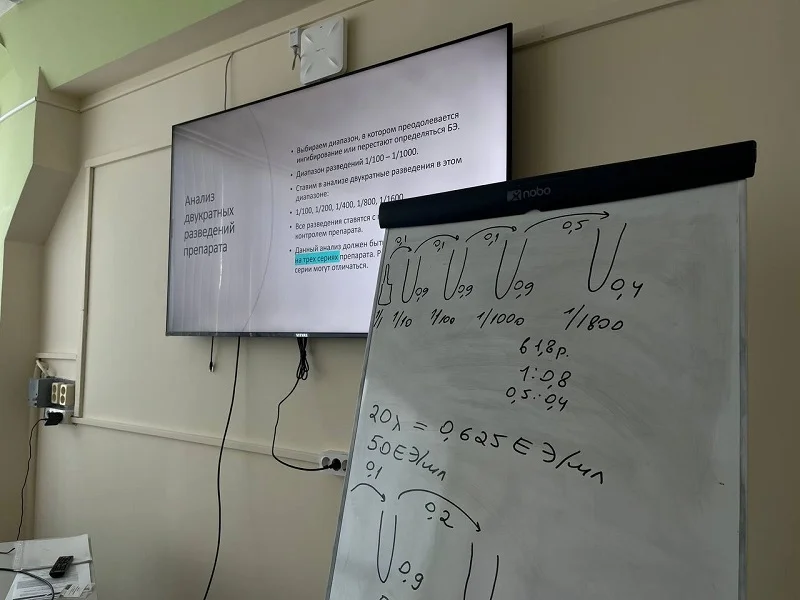 Анализ
двукратных
разведений
препарата
• Выбираем диапазон, в котором преодолевается
ингибирование или перестают определяться БЭ.
• Диапазон разведений 1/100 – 1/1000.
• Ставим в анализе двукратные разведения в этом
диапазоне:
• 1/100, 1/200, 1/400, 1/800, 1/1600
• Все разведения ставятся с
контролем препарата.
• Данный анализ должен быть
на трех сериях препарата. Р
серии могут отличаться.
nobo
0,1 0,1 0,1 0,5
0,9 0,9 0,9 0,4
1/10 1/100 1/1000 1/1800
в 1,8 р.
1:0,8
0,5:0,4
20λ = 0,625 ЕЭ/мл
50 ЕЭ/мл
0,1 0,2
0,9